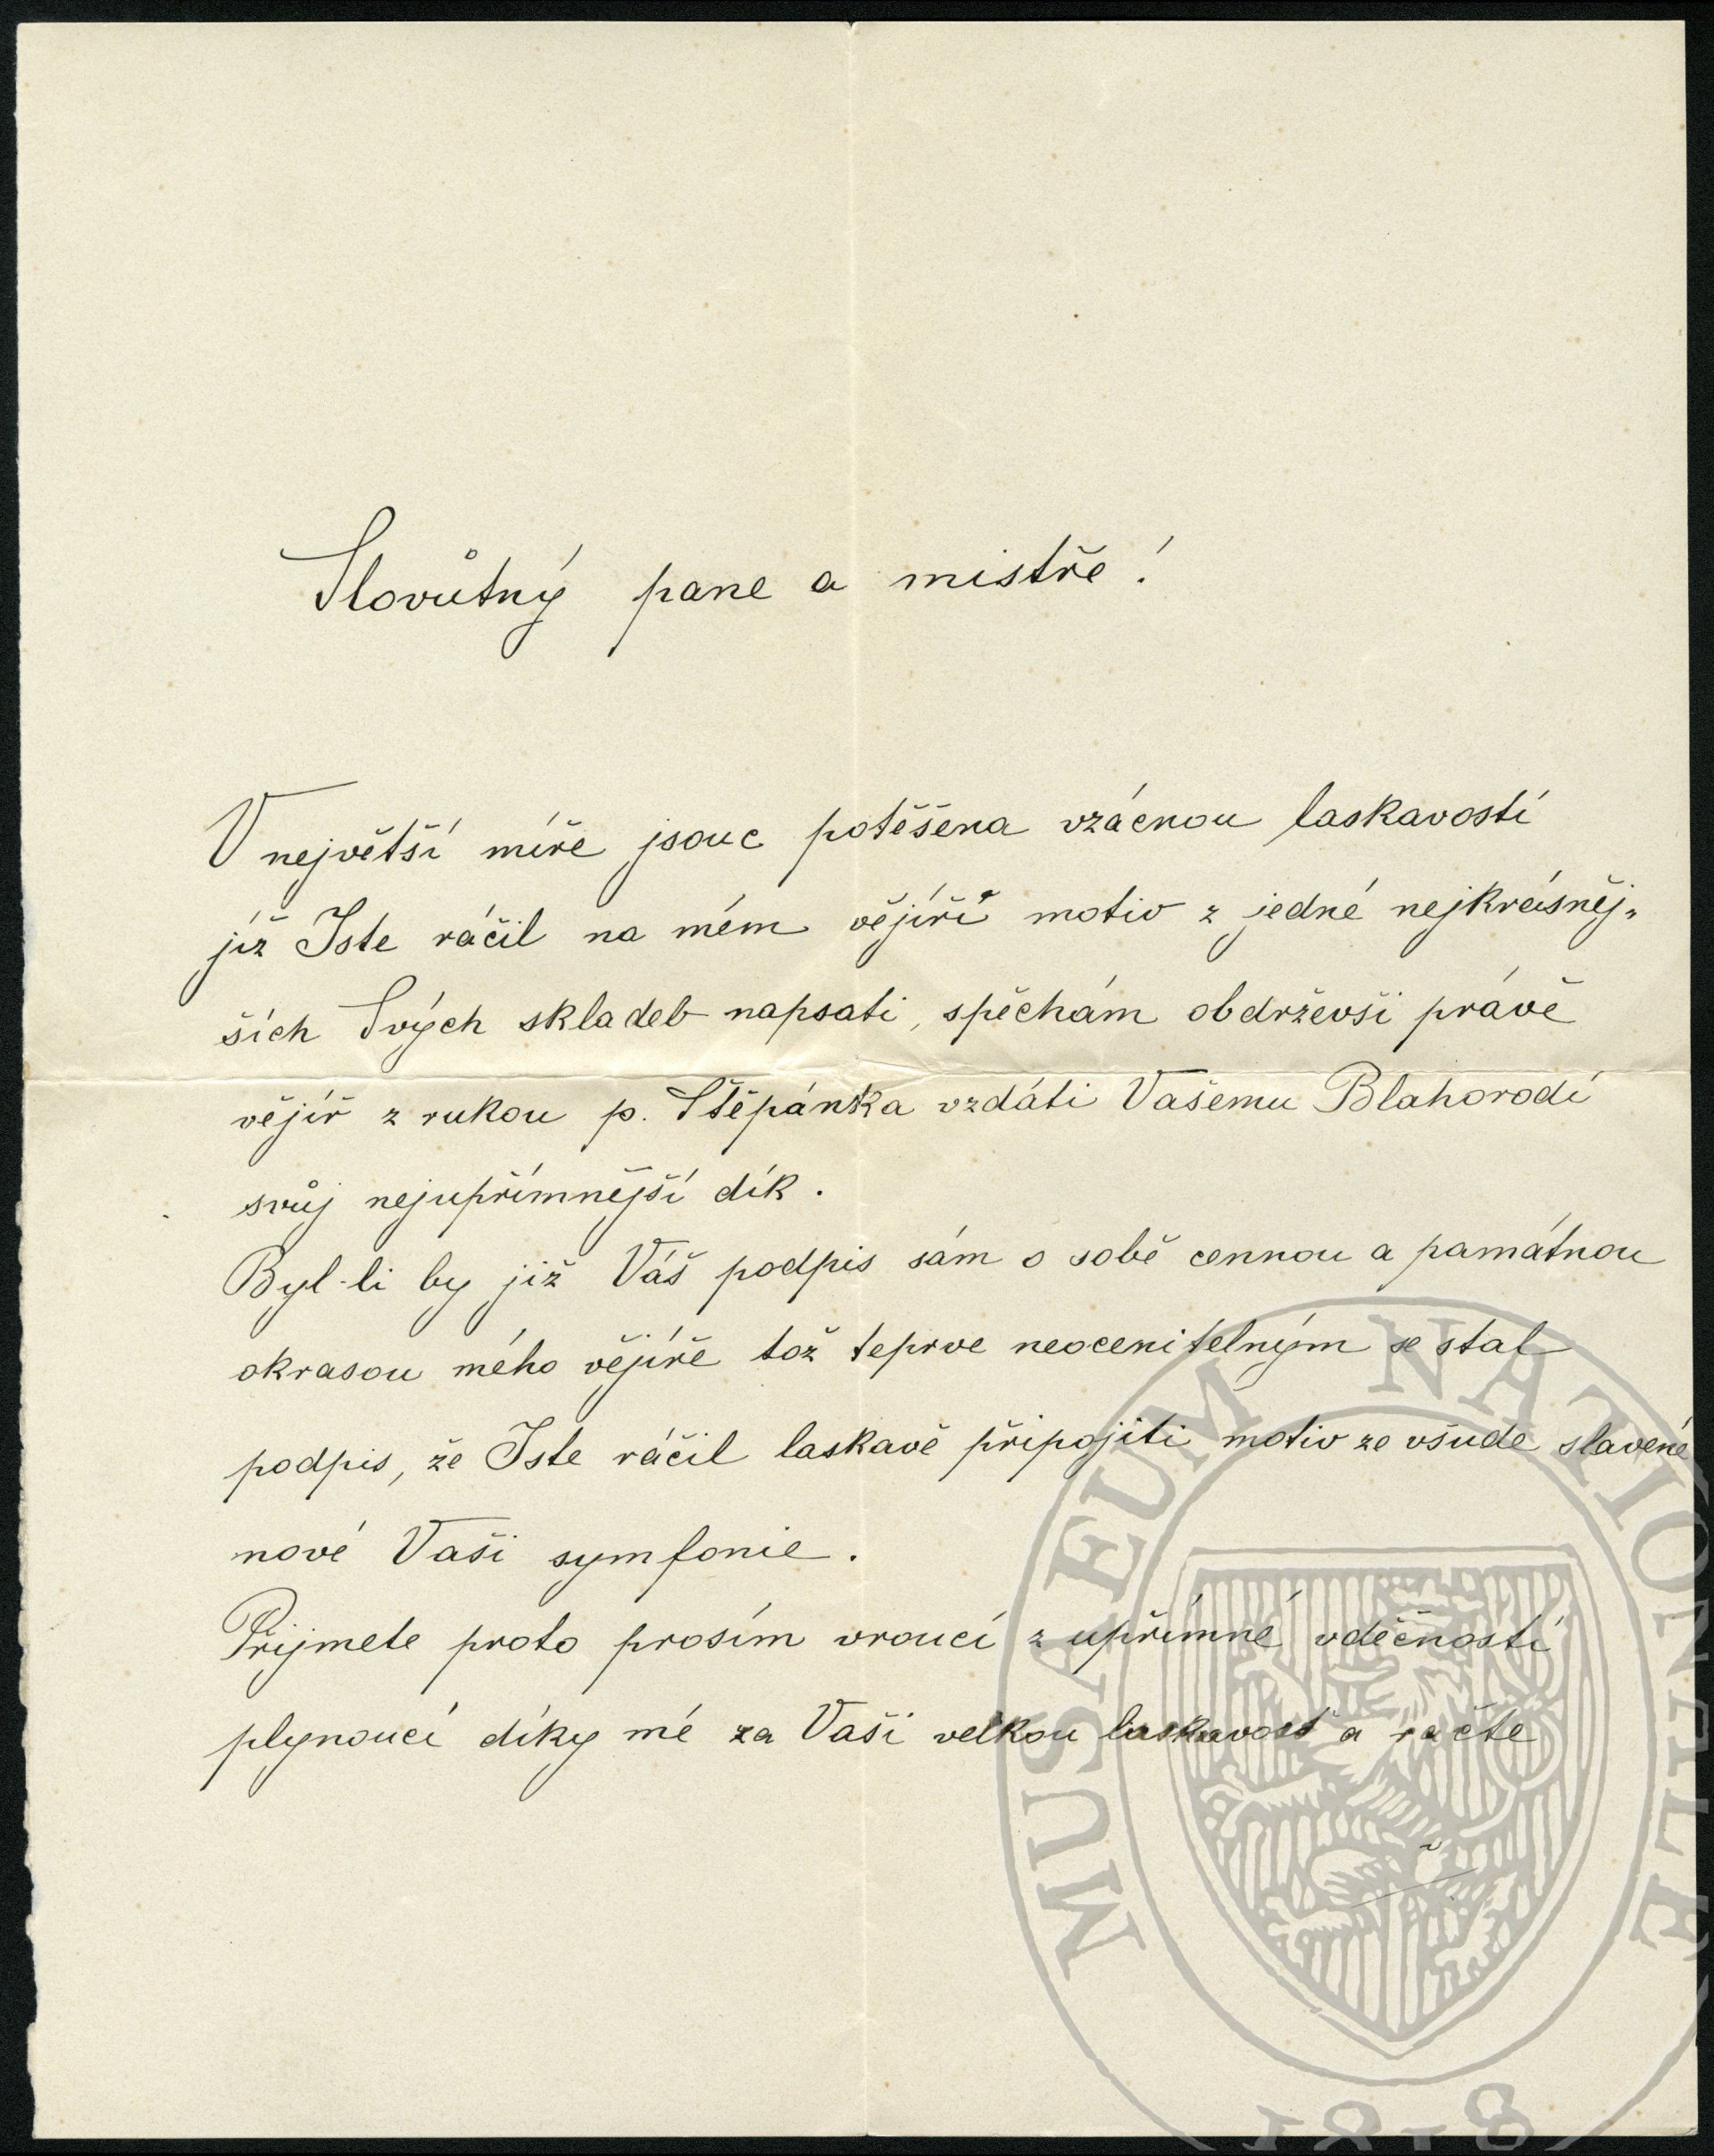 Slovůtný pane a mistře!
V největší míře jsouc potěšena vzácnou laskavostí
jíž Jste ráčil na mém vějíři motiv z jedné nejkrásněj„
ších Svých skladeb napsati, spěchám obdrževši právě
vějíř z rukou p. Štěpánka vzdáti Vašemu Blahorodí
svůj nejupřímnější dík.
Byl-li by již Váš podpis sám o sobě cennou a památnou
okrasou mého vějíře tož teprve neocenitelným se stal
podpis, že Jste ráčil laskavě připojiti motiv ze všude slavené
nové Vaši symfonie.
Přijmete proto prosím vroucí z upřímné vděčnosti
plynoucí díky mé za Vaši velkou laskavost a račte
MUSAEUM NATIONALE
1818